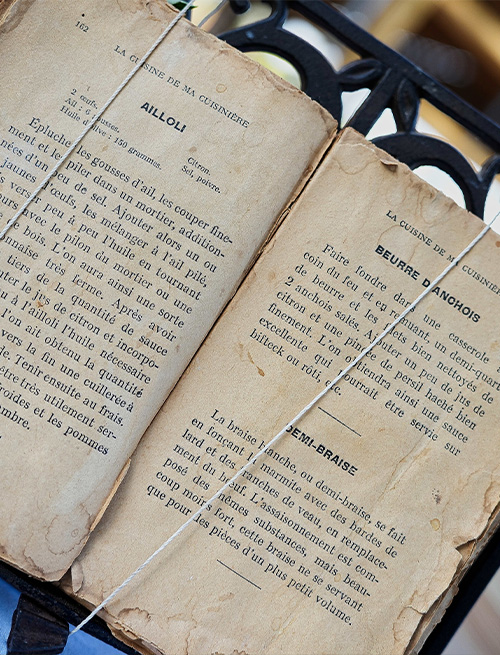 162
LA CUISINE DE MA CUISINIÈRE
AILLOLI
2 œufs.
Ail : 6 gousses.
Huile d'olive : 150 grammes.
Citron.
Sel, poivre.
Epluche les gousses d'ail, les couper fine-
ment et le piler dans un mortier, addition-
nées d'un peu de sel. Ajouter alors un ou
jaunes d'œufs, les mélanger à l'ail pilé,
verser peu à peu l'huile en tournant
avec le pilon du mortier ou une
de bois. L'on aura ainsi une sorte
nnaise très ferme. Après avoir
tiers de la quantité de sauce
jus de citron et incorpo-
à l'ailloli l'huile nécessaire
l'on ait obtenu la quantité
vers la fin une cuillerée à
Tenir ensuite au frais.
être très utilement ser-
froides et les pommes
LA CUISINE DE MA CUISINIER
BEURRE D'ANCHOIS
Faire fondre dans une casserole
coin du feu et en remuant, un demi-quart
de beurre et les anchois bien nettoyés de
2 anchois salés. Ajouter un peu de jus de
citron et une pincée de persil haché bien
finement. L'on obtiendra ainsi une sauce
excellente qui pourrait être servie sur
bifteck ou rôti, etc.
DEMI-BRAISE
La braise blanche, ou demi-braise, se fait
en fonçant la marmite avec des bardes de
lard et des tranches de veau, en remplace-
ment du bœuf. L'assaisonnement est com-
posé des mêmes substances, mais beau-
coup moins fort, cette braise ne se servant
que pour les pièces d'un plus petit volume.